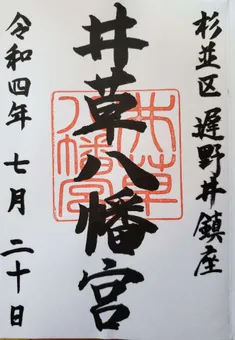 杉並区 遅野井鎮座
井草八幡宮
井草八幡宮
令和四年 七月 二十日